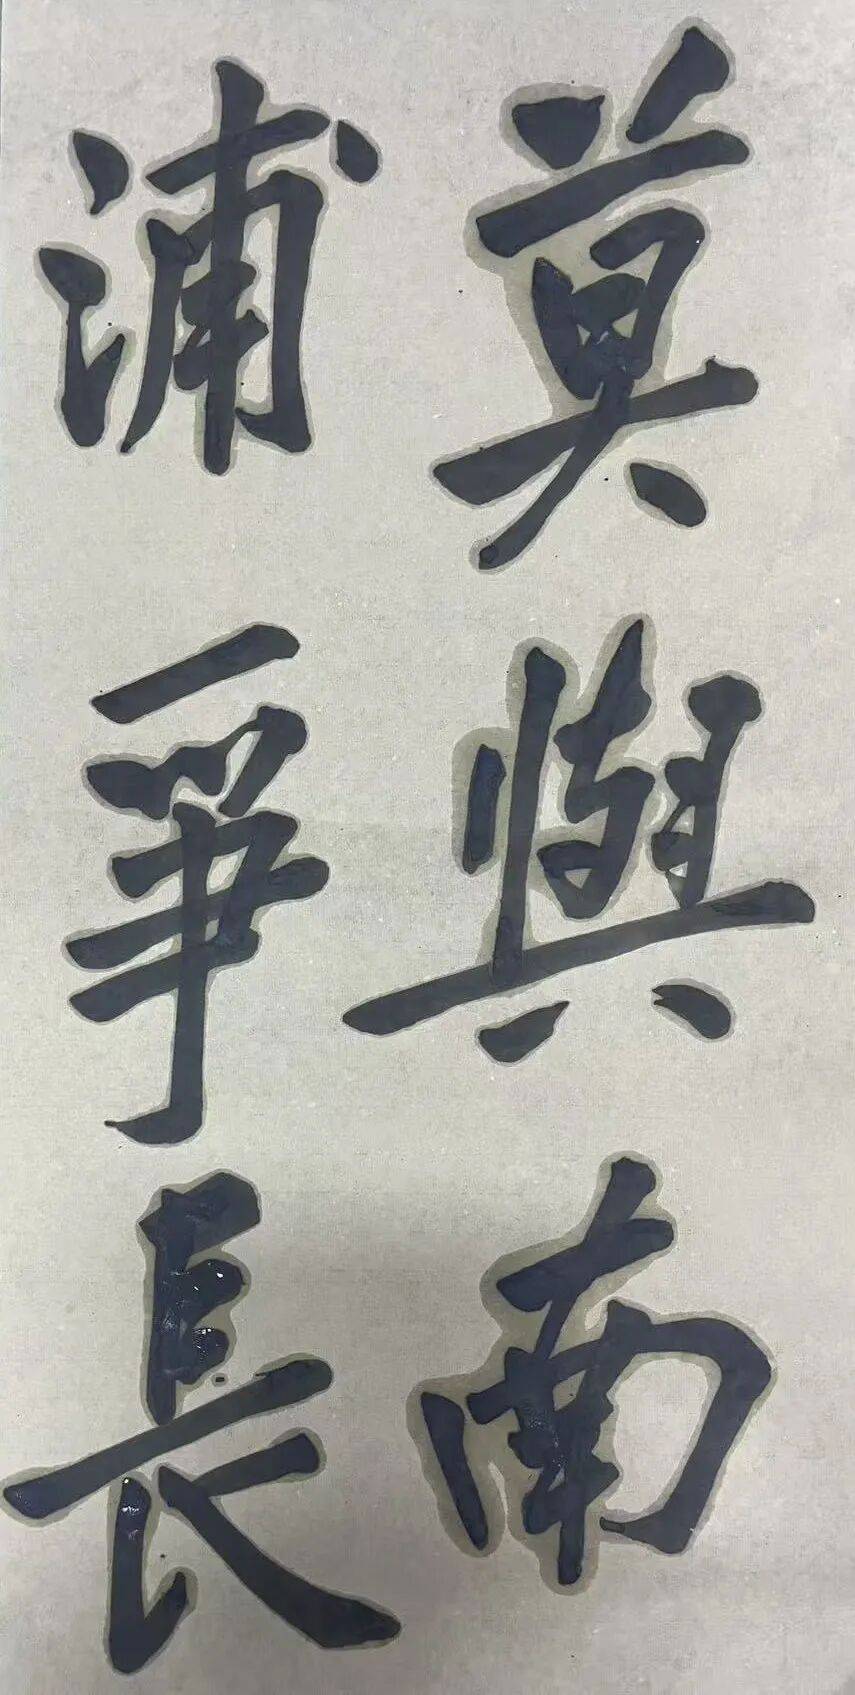 莫與南
浦爭長